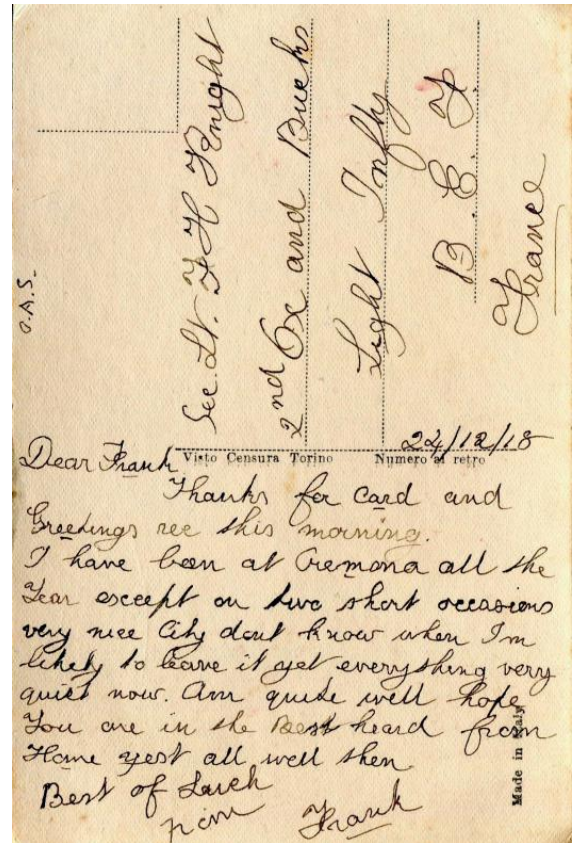 O.A.S.
Sec. Lt. F H Knight
2nd Ox and Bucks
Light Inftry
B. E. F
France
Visto Censura Torino
Numero al retro
24/12/18
Dear Frank
Thanks for Card and
Greetings rec this morning.
I have been at Cremona all the
Year except on two short occasions
very nice City dont know when I'm
likely to leave it yet everything very
quiet now. Am quite well hope
You are in the Best heard from
Home yest all well then.
Best of Luck
from Frank
Made in Italy